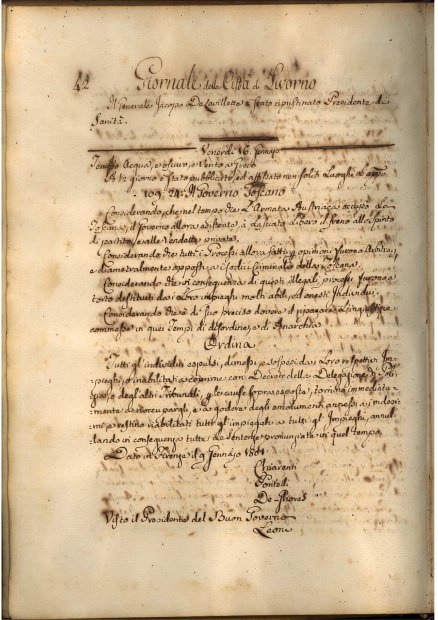 42 Giornale della Città di Livorno
Il Generale Jacopo De Lavillette è stato ripristinato Presidente di
Sanità.
Venerdì 16. Gennajo
Tempo Acqua, e oscuro, e Vento a
A di giorno è stato pubblicato, ed affissato nei soliti Luoghi
109: 24: Il Governo Toscano
Considerando, che nel tempo che l'Armata Austriaca occupò la
Toscana, il Governo allora esistente, à lasciato libero il freno allo spirito
di partito, e alle Vendette private.
Considerando che tutti i Processi allora fatti p opinioni furono Arbitrarj,
e diametralmente opposti a i Codici Criminali della Toscana.
Considerando che in consequenza di questi illegali processi furono a
torto destituiti da i Loro impieghi molti abili, ed onesti Individui.
Considerando che è di suo preciso dovere il riparare l'ingiustizie
commesse in quei tempi di disordine, e di Anarchia
Ordina
Tutti gl'individui espulsi, dimessi, e sospesi dai Loro respettivi Im-
pieghi, o inabilitati a coprirne, con Decreto delle Delegazioni, di
e degli altri Tribunali, p le cause sopra esposte, tornino immediata-
mente ad occuparli, e a godere degl'emolumenti annessi a i medesi-
mi, e restino riabilitati tutti gl'impiegati a tutti gl'Impieghi, annul-
lando in conseguenza tutte le Sentenze pronunziate in quel tempo.
Dato in Firenze il 9 Gennajo 1801
Chiarenti
Pontelli
De-Ghores
Visto il Presidente del Buon Governo
Leoni